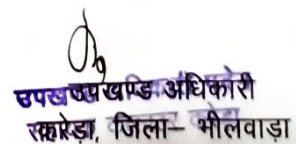 उपखण्ड अधिकारी
जिला– भीलवाड़ा